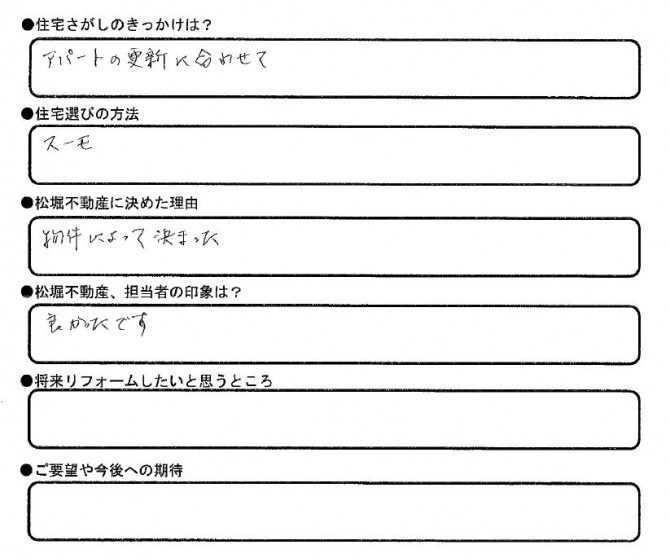 ●住宅さがしのきっかけは？
アパートの更新に合わせて
●住宅選びの方法
スーモ
●松堀不動産に決めた理由
物件によって決まった
●松堀不動産、担当者の印象は？
良かったです
●将来リフォームしたいと思うところ
●ご要望や今後への期待